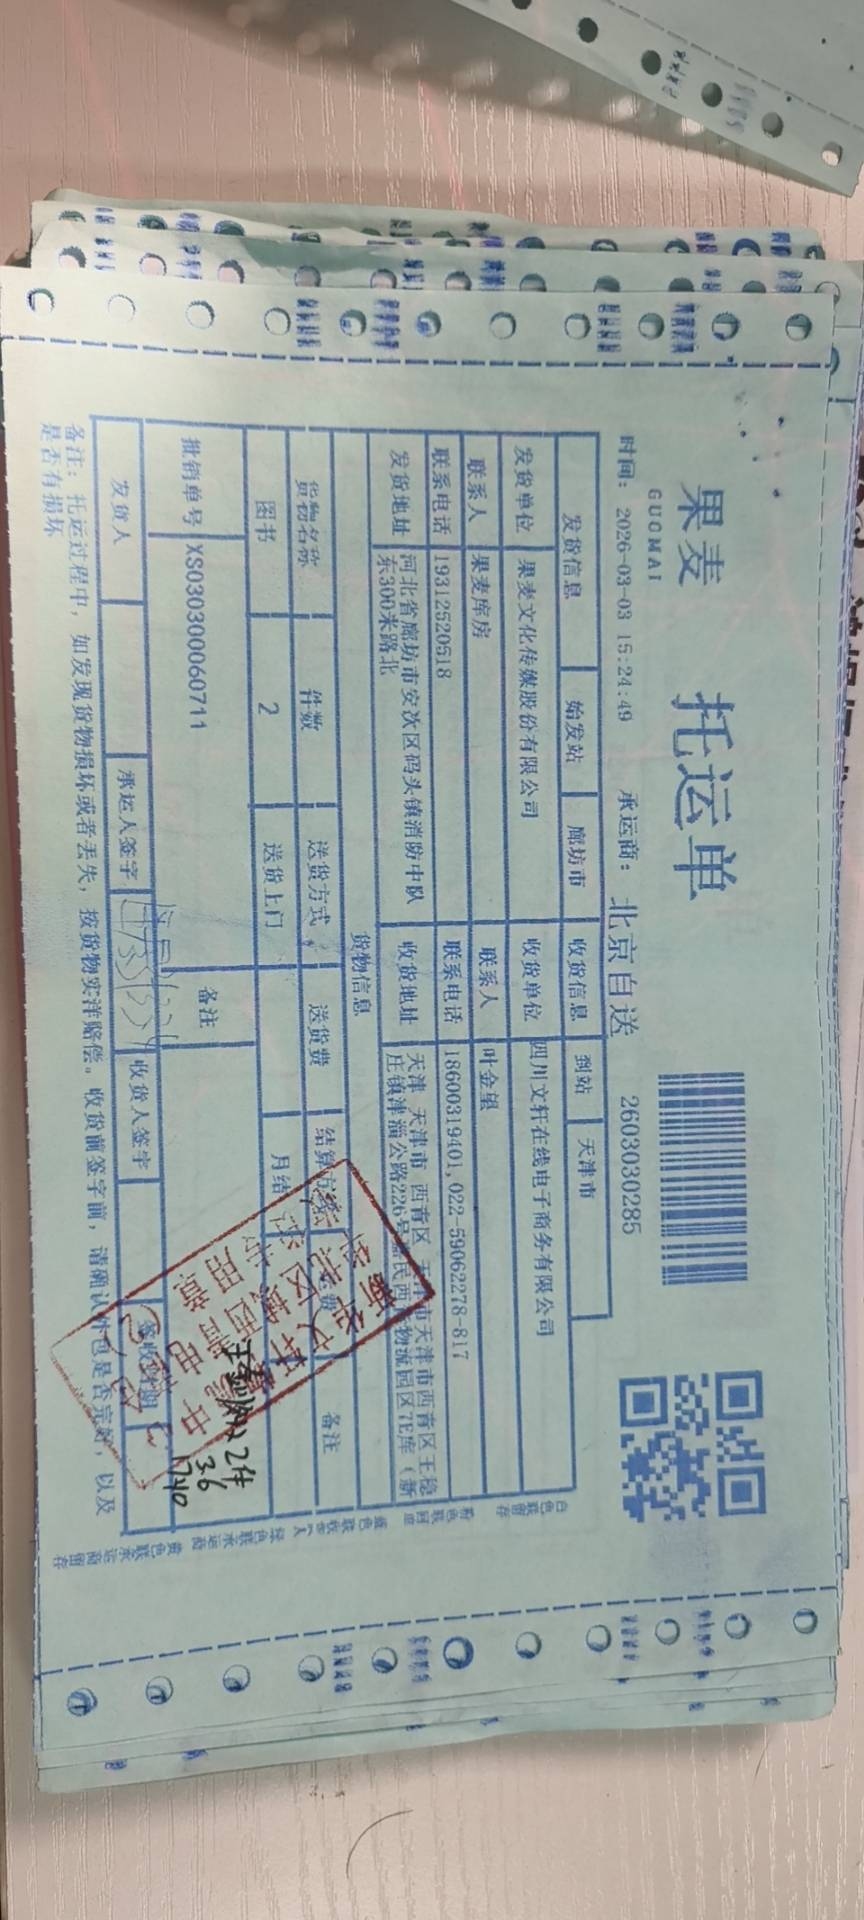 果麦 托运单
GUOMAI
时间: 2026-03-03 15:24:49 承运商: 北京自送 2603030285
发货信息 始发站 廊坊市 收货信息 到站 天津市
发货单位 果麦文化传媒股份有限公司 收货单位 四川文轩在线电子商务有限公司
联系人 果麦库房 联系人 叶金望
联系电话 19312520518 联系电话 18600319401,022-59062278-817
发货地址 河北省廊坊市安次区码头镇消防中队
东300米路北
收货地址 天津 天津市 西青区 天津市天津市西青区王稳
庄镇津淄公路226号嘉民西 物流园区7E库（新
货物信息
货物名称 件数 送货方式 送货费 结算方 费 备注
图书 2 送货上门 月结
批销单号 XS030300060711 备注
发货人 承运人签字 收货人签字 签收日期
备注: 托运过程中, 如发现货物损坏或者丢失, 按货物实洋赔偿。收货前签字前, 请确认外包是否完好, 以及
是否有损坏
新华文轩
华北区域西青电
专用章
2件
3.6
1740
白色联留存
粉色联回单
蓝色联收货人
绿色联承运商
黄色联承运商留存